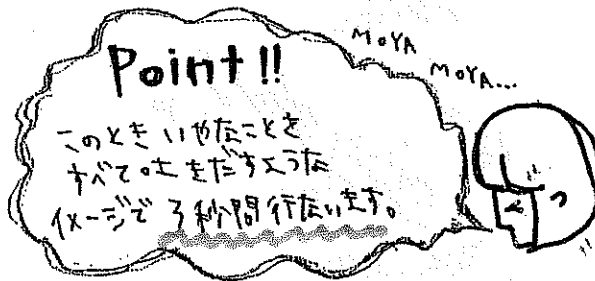 Point!!
MOYA
MOYA...
このとき いやなことを
すべて吐きだすような
イメージで 3秒間行ないます。